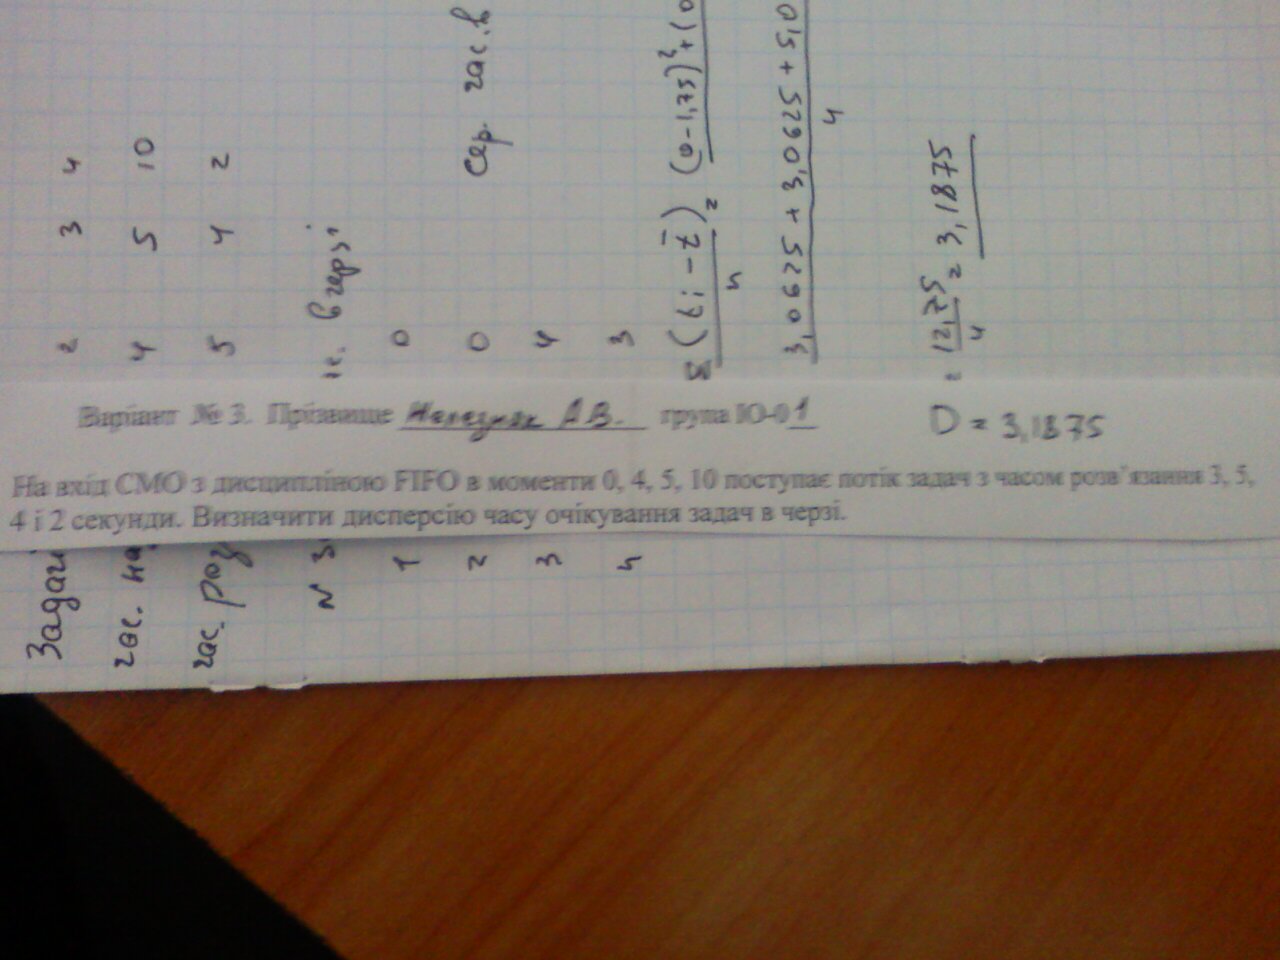 Варіант № 3. Прізвище А.В. група ІО-01
На вхід СМО з дисципліною FIFO в моменти 0, 4, 5, 10 поступає потік задач з часом розв'язання 3, 5,
4 і 2 секунди. Визначити дисперсію часу очікування задач в черзі.
D = 3,1875
Задачі 2 3 4
час. на 4 5 10
час. роз 5 4 2
N з в черзі
1 0
2 0 Сер. час. в
3 4
4 3
(ti - t̄)² (0-1,75)² + (0
n
3,0625 + 3,0625 + 5,0
4
= 12,75 = 3,1875
4